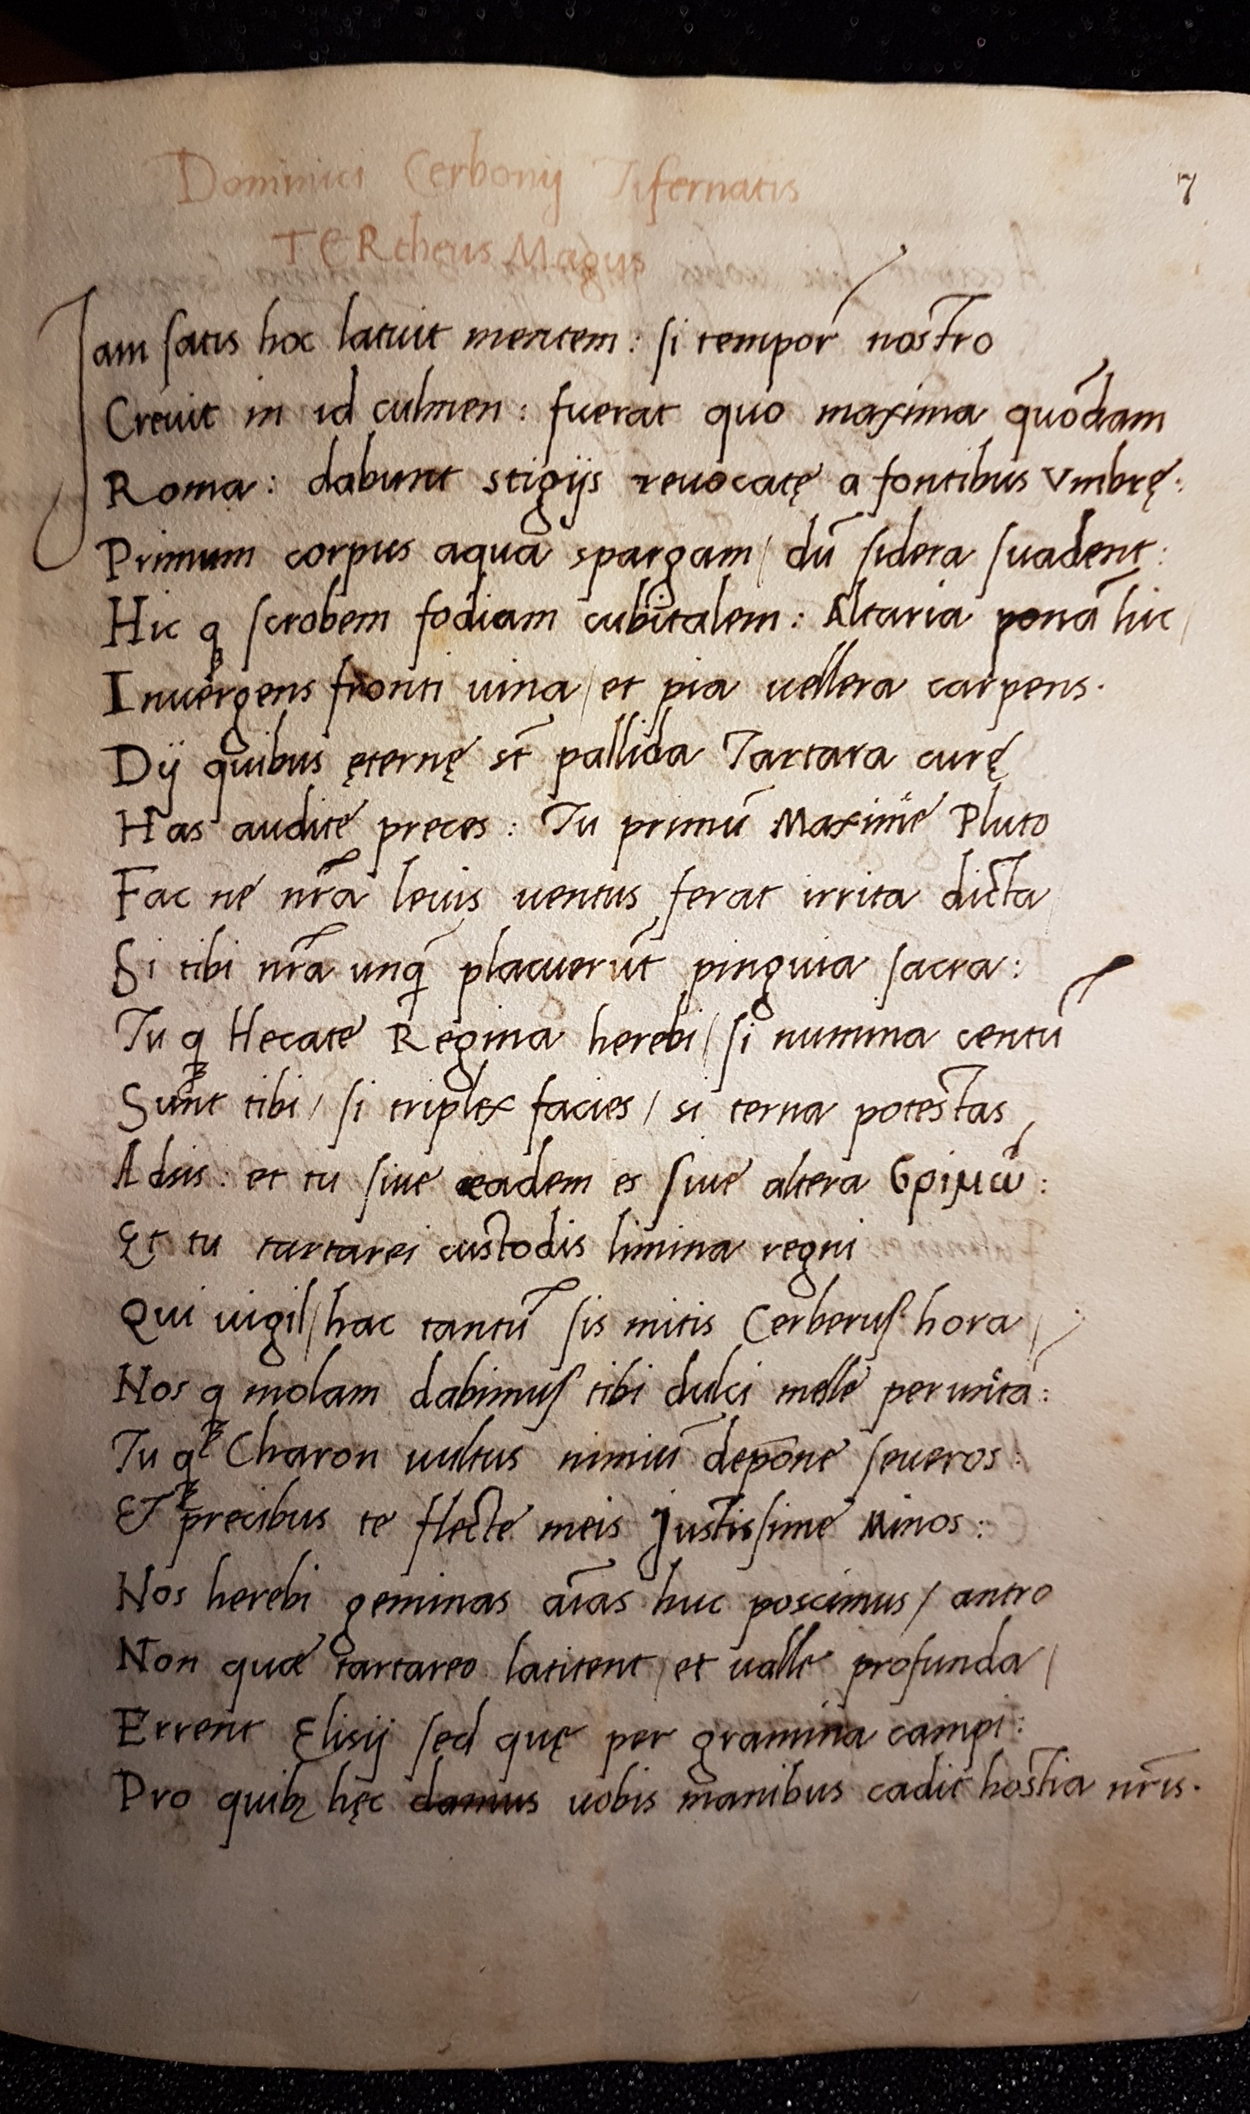 Dominici Cerbonij Tifernatis
7
TERcheus Magus
Jam satis hoc latuit mentem: si tempor̄ nostro
Creuit in id culmen: fuerat quo maxima quōdam
Roma: dabunt stigijs reuocatę a fontibus Vmbrę:
Primum corpus aqua spargam/ dū sidera suadent:
Hic q scrobem fodiam cubitalem: Altaria ponā hic/
Inuergens fronti uina/ et pia uellera carpens.
Dij quibus ęternę st̄ pallida Tartara curę
Has audite preces: Tu primū Maxime Pluto
Fac ne nr̄a leuis uentus ferat irrita dicta
Si tibi nr̄a unq̄ placuerūt pinguia sacra:
Tu q Hecate Regina herebi/ si numina centū
Sunt tibi/ si triplex facies/ si terna potestas
Adsis: et tu siue eadem es siue altera βριμώ:
Et tu tartarei custodis limina regni
Qui uigil/ hac tantū sis mitis Cerberus hora/
Nos q molam dabimus tibi dulci melle perunctā:
Tu q Charon uultus nimiū depone seueros:
Et precibus te flecte meis Justissime Minos:
Nos herebi geminas aīas huc poscimus/ antro
Non quæ tartareo latitent/ et ualle profunda/
Errent Elisij sed quę per gramina campi:
Pro quibꝫ hęc damus uobis manibus cadit hostia nr̄is.